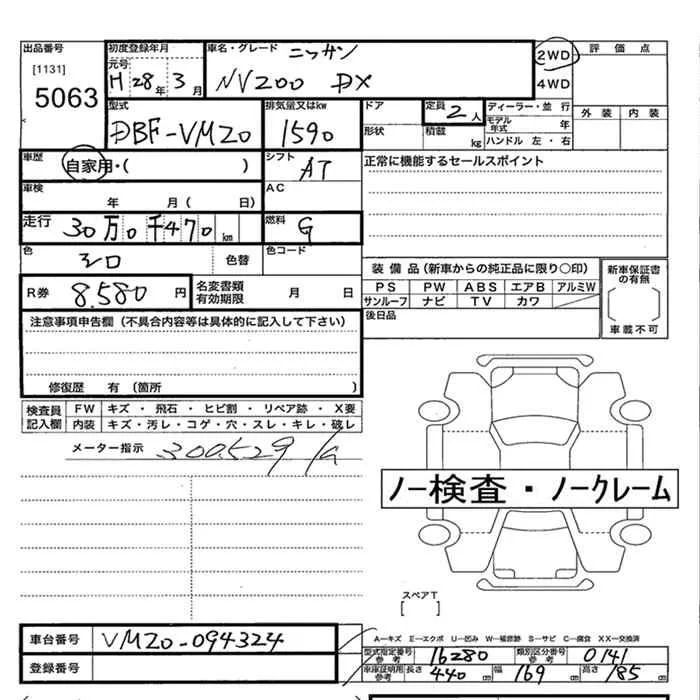 出品番号 [1131] 5063
初度登録年月 元号 H 28年 3月
車名・グレード ニッサン NV200 DX
2WD 4WD
評価点 外装 内装
型式 DBF-VM20
排気量又はkw 1590
ドア 形状
定員 2人 積載 kg
ディーラー・並行
モデル年式 年
ハンドル 左・右
車歴 自家用・( )
シフト AT
正常に機能するセールスポイント
車検 年 月( 日)
AC
走行 30万0千470km
燃料 G
色 シロ 色替
色コード
R券 8.580円
名変書類有効期限 月 日
装備品(新車からの純正品に限り○印)
PS PW ABS エアB アルミW
サンルーフ ナビ TV カワ
新車保証書の有無
車載不可
後日品
注意事項申告欄(不具合内容等は具体的に記入して下さい)
修復歴 有(箇所 )
検査員記入欄
FW キズ・飛石・ヒビ割・リペア跡・X要
内装 キズ・汚レ・コゲ・穴・スレ・キレ・破レ
メーター指示 300.529
ノー検査・ノークレーム
スペアT
[ ]
車台番号 VM20-094324
登録番号
A―キズ E―エクボ U―凹み W―補修跡 S―サビ C―腐食 XX―交換済
型式指定番号 参考 16280
類別区分番号 参考 0141
車庫証明用 参考 長さ 440cm 幅 169cm 高さ 185cm